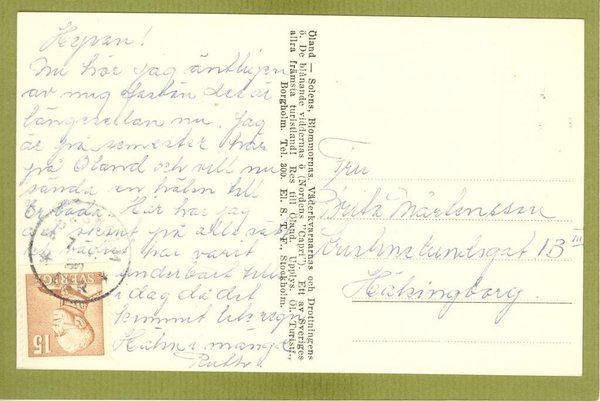 Hejsan!
Nu hör jag äntligen
av mig fastän det är
länge sedan nu. Jag
är på semester här
på Öland och vill nu
sända en hälsn till
Er båda. Här har jag
det skönt på alla sätt
och vädret har varit
underbart till
idag då det
kommit lite regn
Hälsn i mängd
Ruth
Öland — Solens, Blommornas, Väderkvarnarnas och Drottningens
ö. De blånande viddernas ö (Nordens "Capri"). Ett av Sveriges
allra främsta turistland! Res till Öland. Upplys. Öl. Turistf.,
Borgholm. Tel. 300. El. S. T. F., Stockholm.
Fru
Brita Mårtensson
Kristinelundsgat 13 III
Hälsingborg.
SVERIGE
15